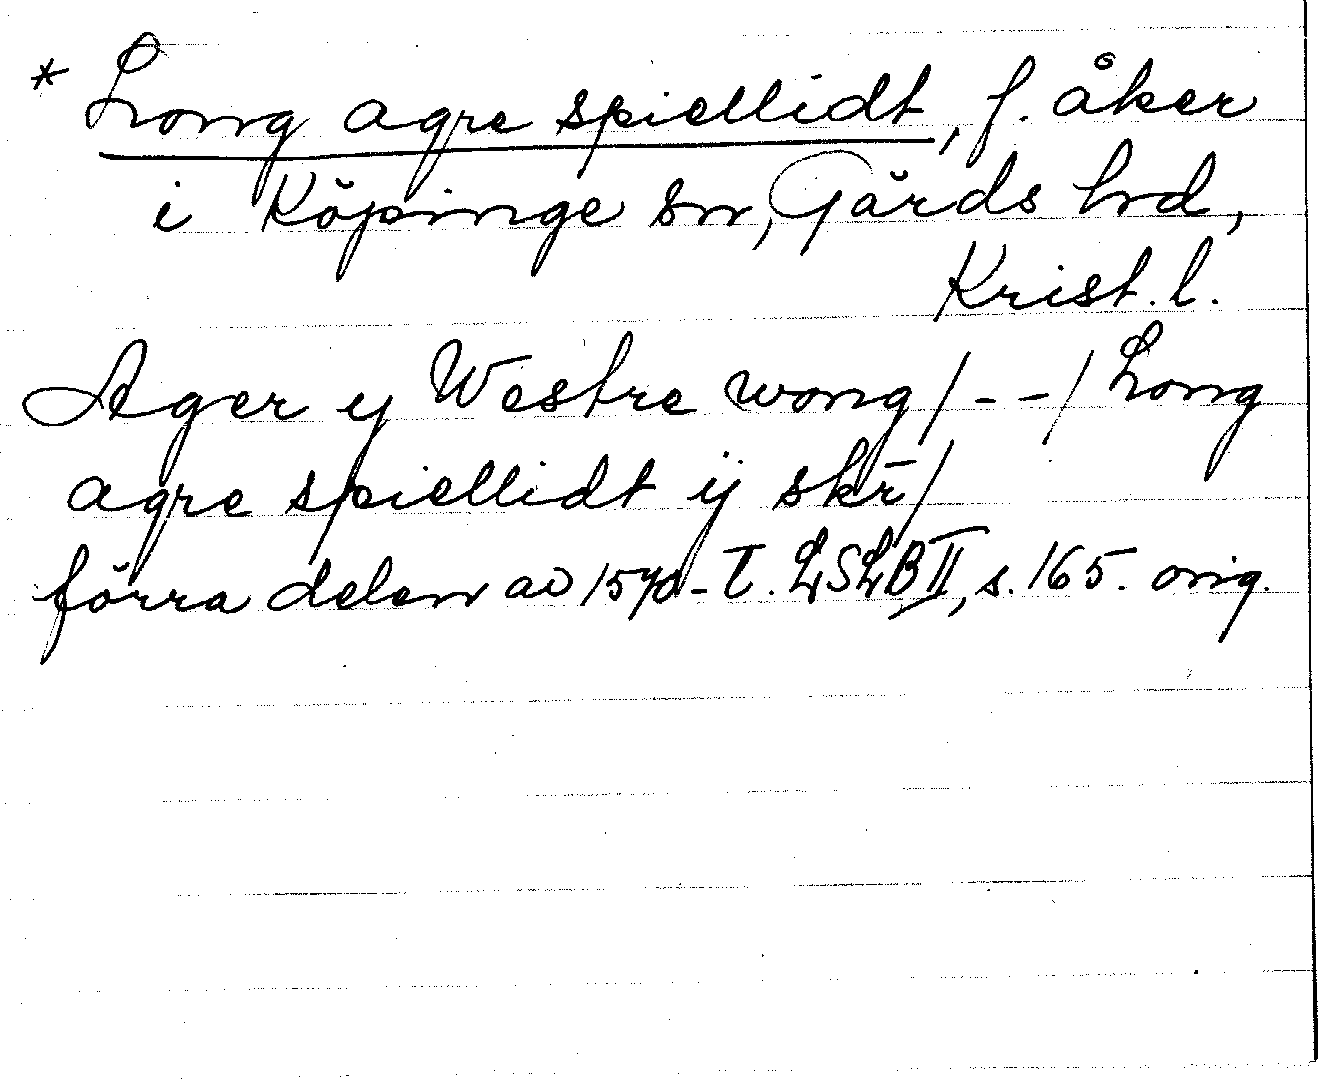 * Long agre spiellidt, f. åker
i Köpinge sn, Gärds hd,
Krist. l.
Ager y Westre wong /--/ Long
agre spiellidt ij skr̄/
förra delen av 1570-t. LSLB II, s. 165. orig.